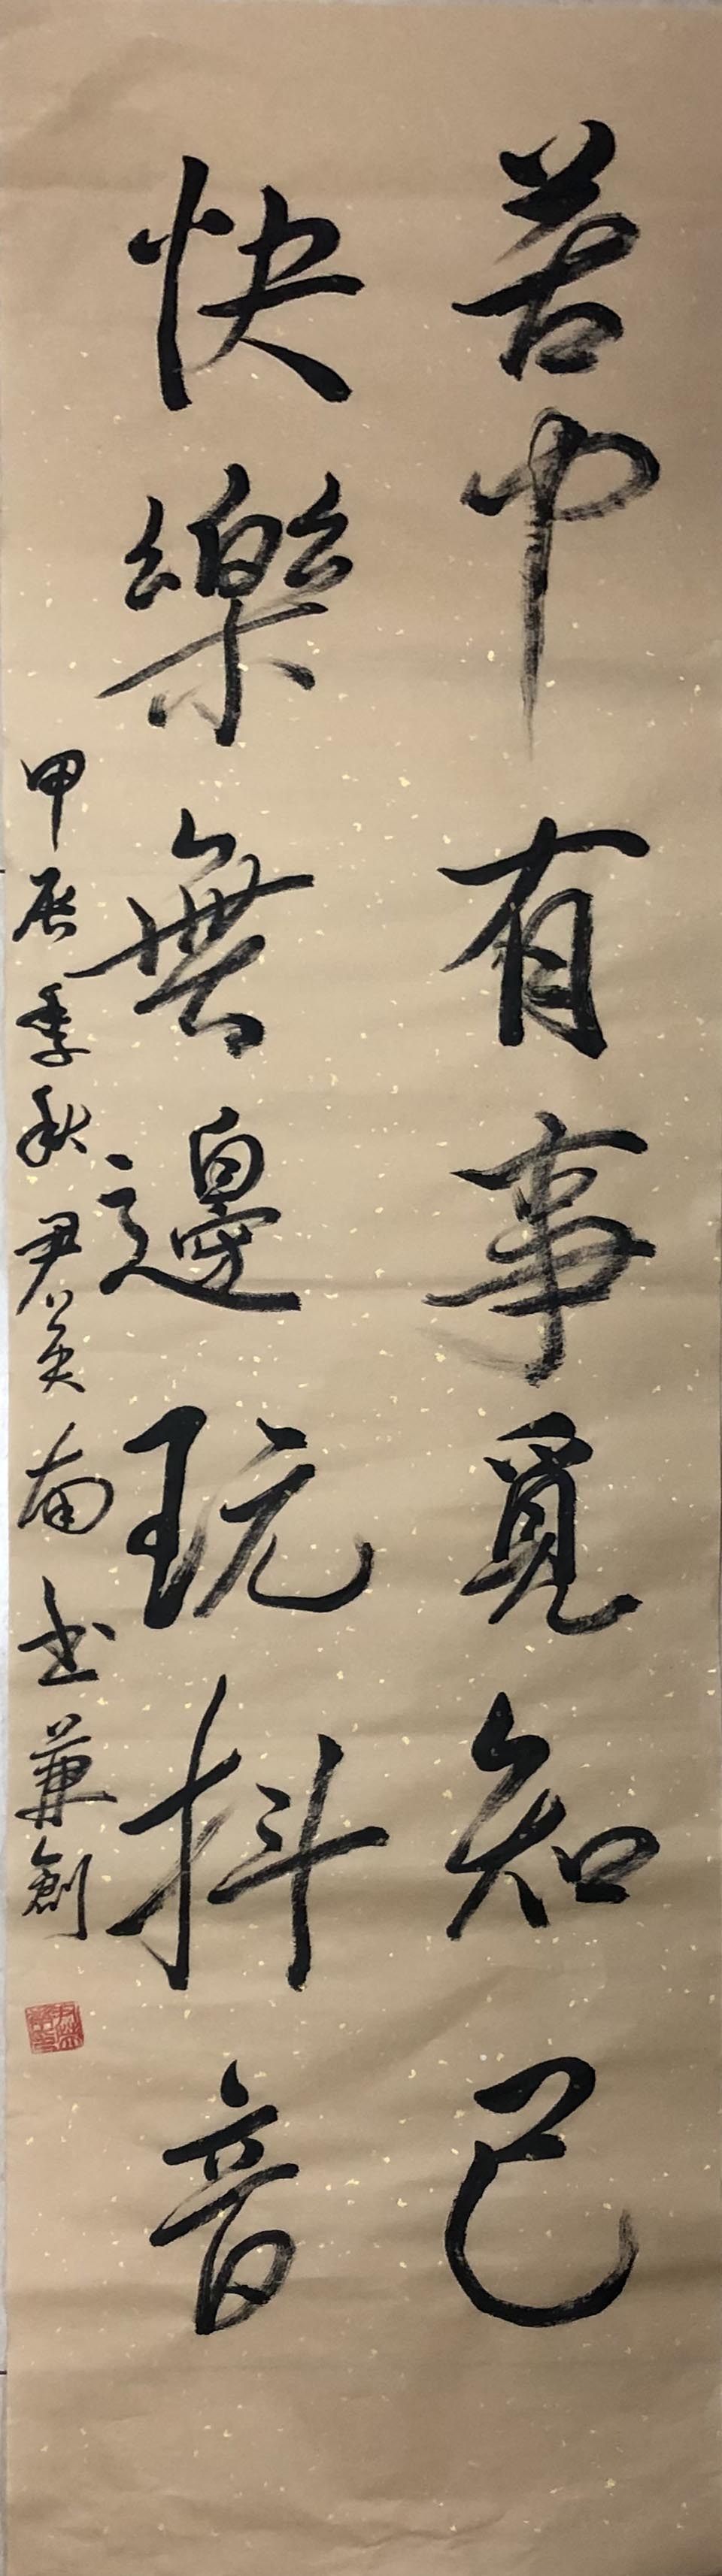 苦中有事覓知己
快樂無邊玩抖音
甲辰季秋尹英南书兼創